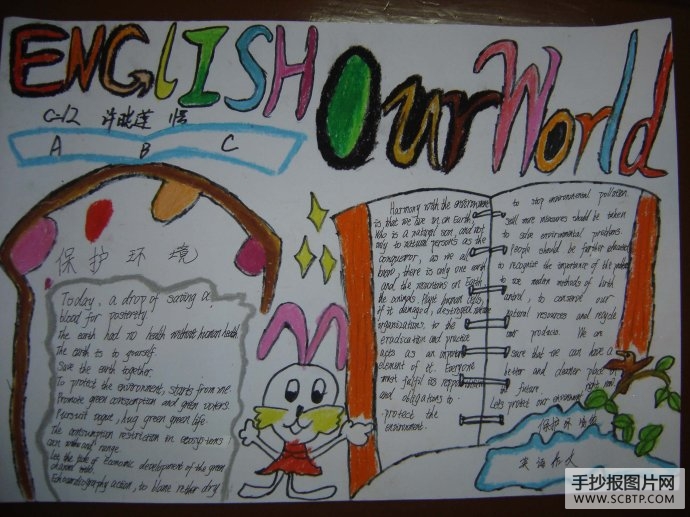 ENGLISH
Our World
C-12 许晓莲
A B C
保护环境
Today, a drop of saving a
blood for posterity!
The earth had no health without human health
The earth is to yourself
Save the earth together
To protect the environment, starts from me
Promote green consumption and green voters
Pursuit vogue, hug green green life
The consumption restriction in ecosystems
can range
Let the tide of Economic development of the green
channel
action, to blame rather dry
Harmony with the environment
is that we live in on Earth,
Who is a natural son, and not
only to natural persons as the
conqueror, as we all
know, there is only one earth
and the mountains on Earth
the animals Plant human cells,
if it damaged, destroyed
organizations, to the
eradication and practice
acts as an important
element of it. Everyone
must fulfil as responsibilities
and obligations to
protect the
environment.
to stop environmental pollution.
and more measures should be taken
to solve environmental problems.
People should be further educated
to recognize the importance of the problem
to use modern methods of birth
control, to conserve our
natural resources and recycle
our products. We are
sure that we can have a
better and cleaner place in
the future. right now,
Let's protect our environment
保护环境
英语作文
手抄报图片网
WWW.SCBTP.COM